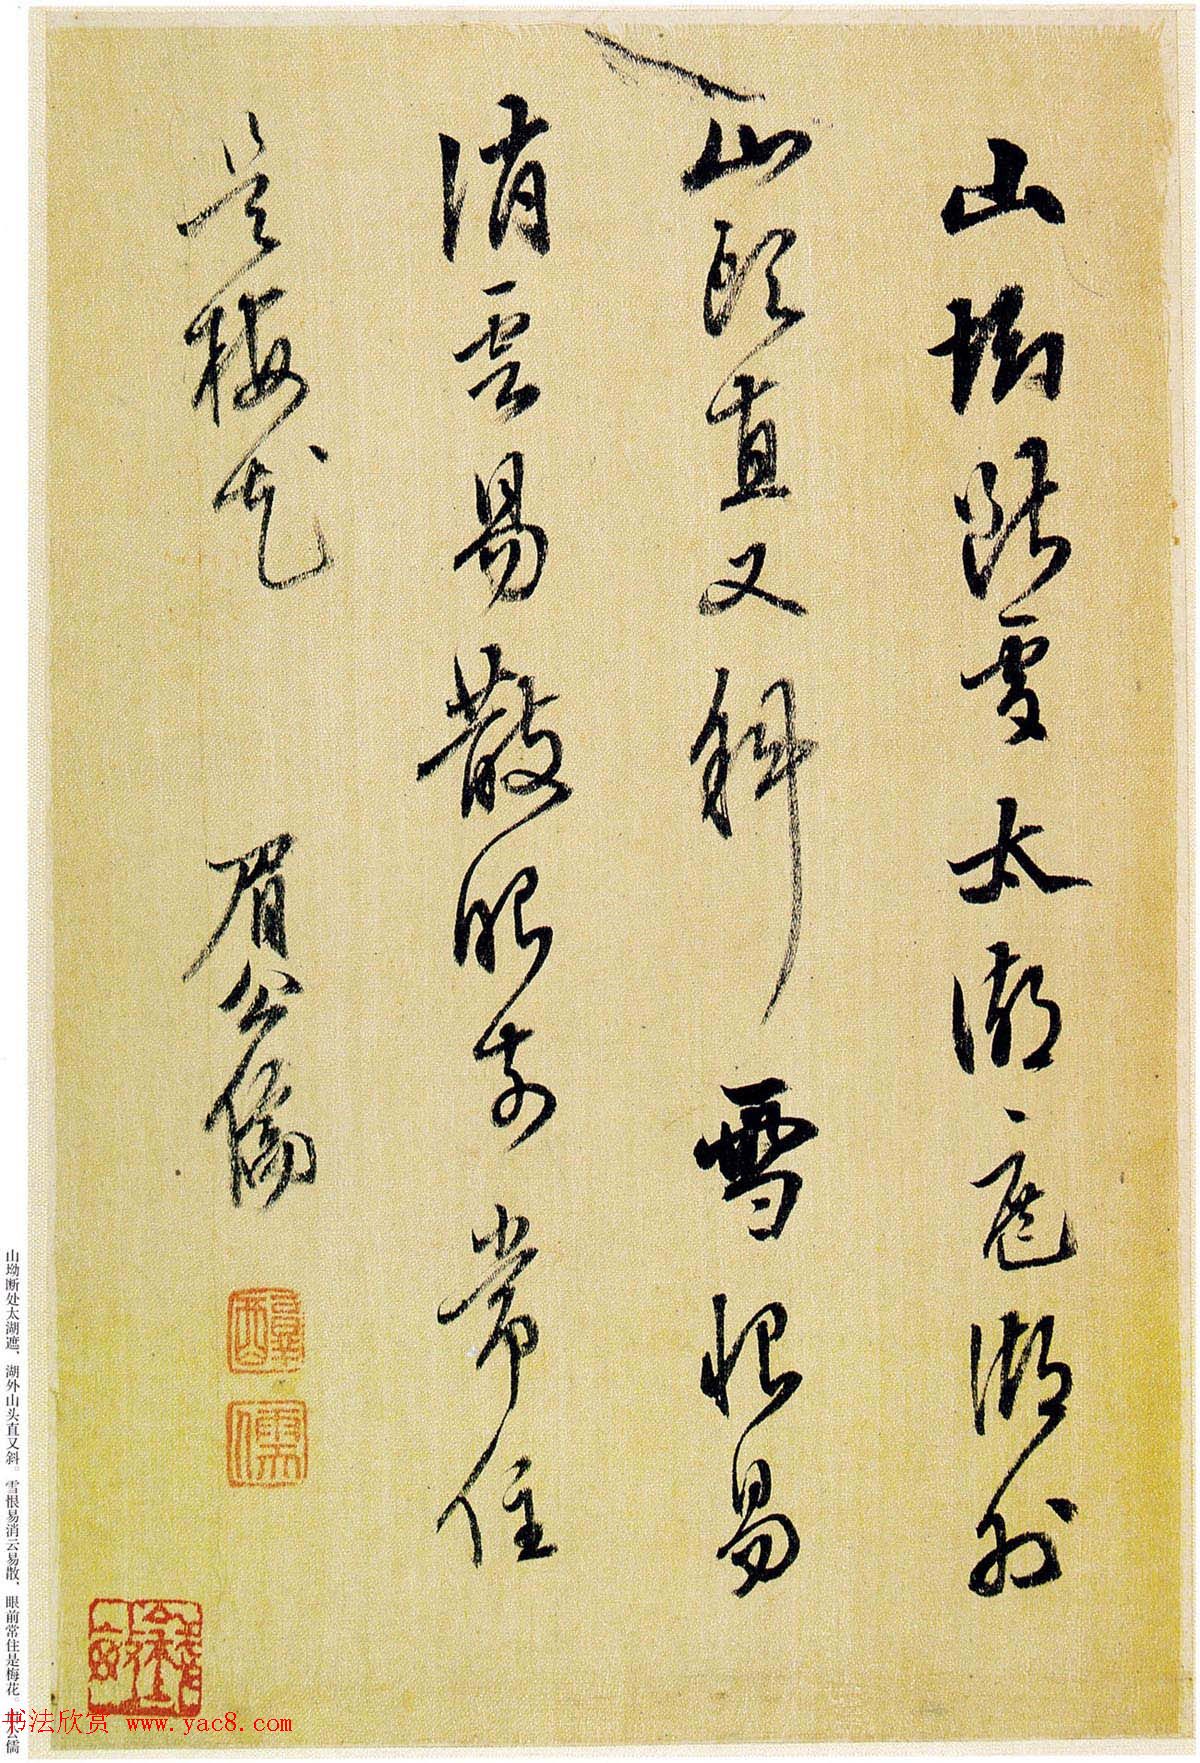 山坳断處太湖遮湖外
山頭直又斜雪恨易
消雲易散眼前常住
是梅花
眉公儒
醇
儒
山坳断处太湖遮，湖外山头直又斜。雪恨易消云易散，眼前常住是梅花。
公儒
书法欣赏 www.yac8.com